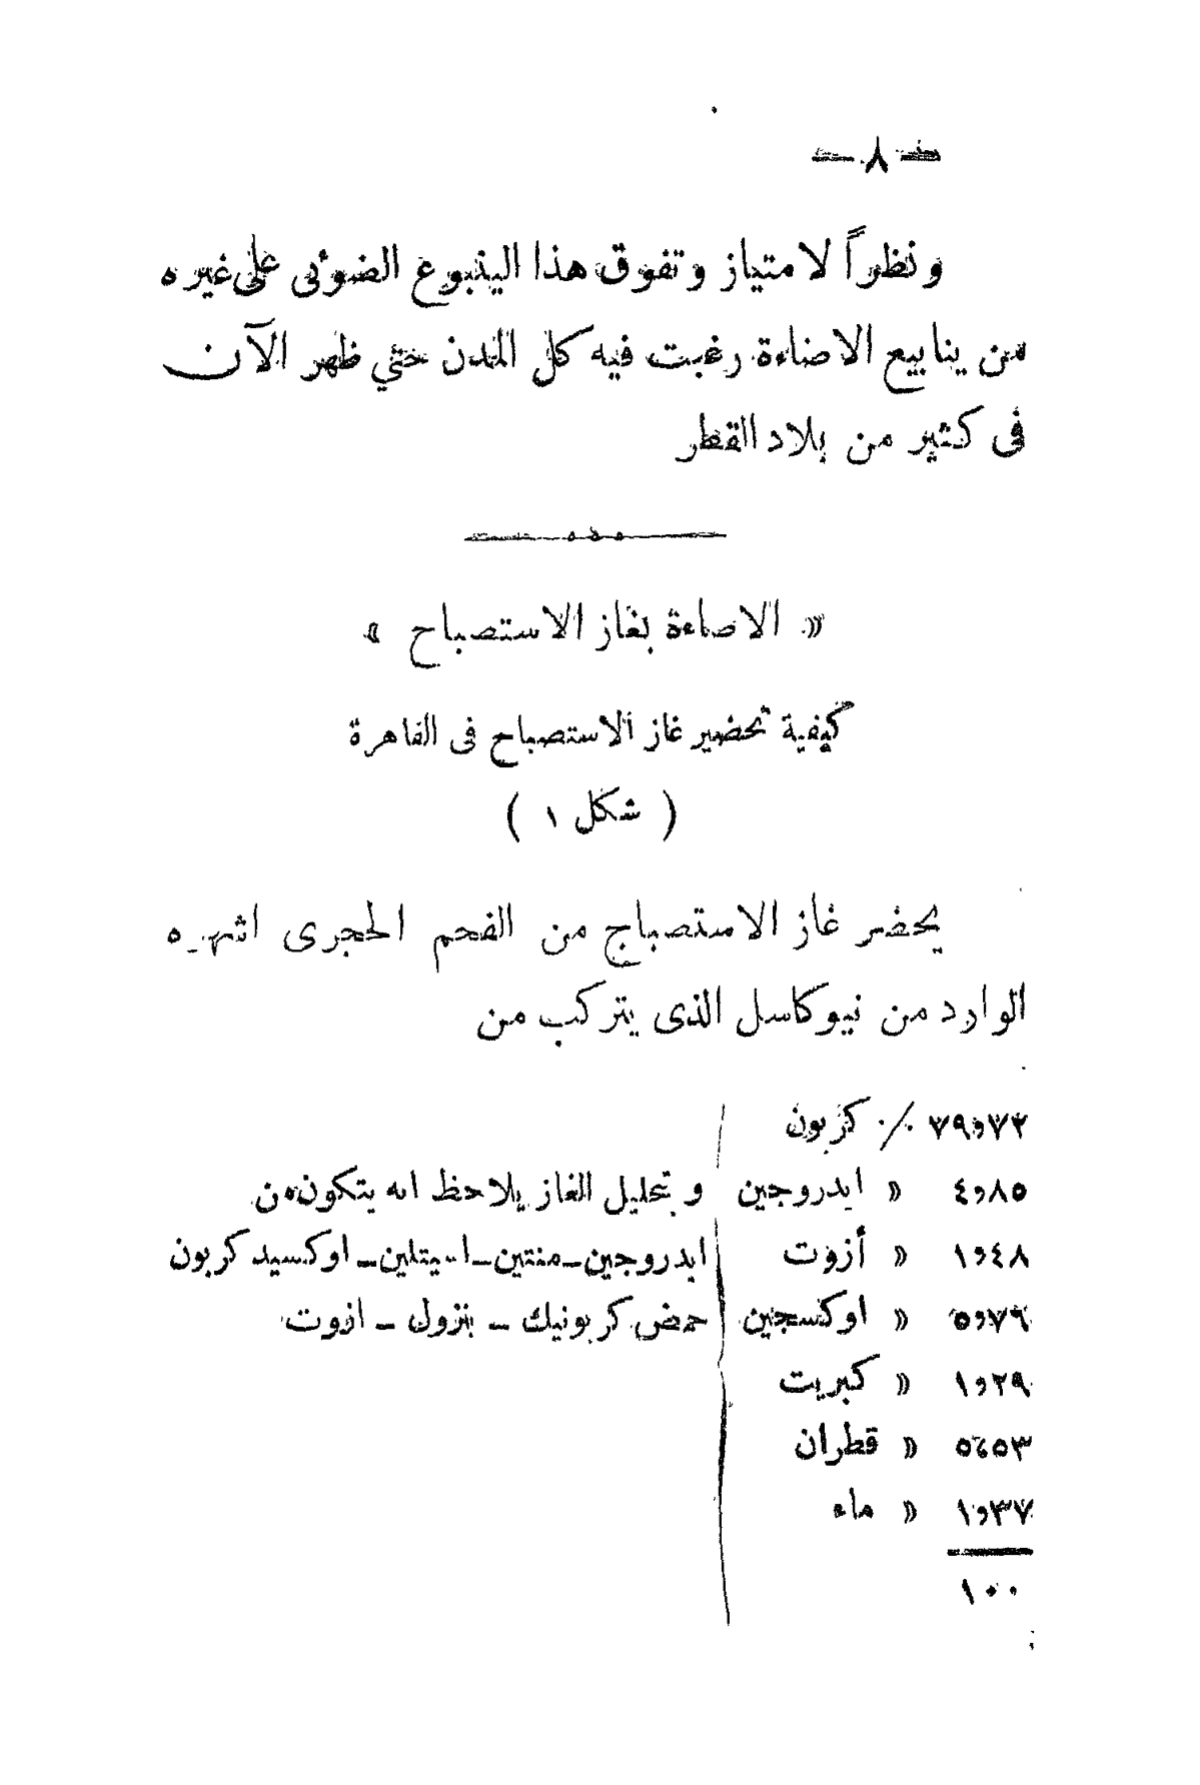 — ٨ —
ونظراً لامتياز وتفوق هذا الينبوع الضوئى على غيره
من ينابيع الاضاءة رغبت فيه كل المدن حتي ظهر الآن
فى كثير من بلاد القطر
« الاضاءة بغاز الاستصباح »
كيفية تحضير غاز الاستصباح فى القاهرة
( شكل ١ )
يحضر غاز الاستصباح من الفحم الحجرى اشهره
الوارد من نيوكاسل الذى يتركب من
٧٩٫٧٢ ٪ كربون
٤٫٨٥ » ايدروجين
١٫٤٨ » أزوت
٥٫٧٦ » اوكسجين
١٫٢٩ » كبريت
٥٫٥٣ » قطران
١٫٣٧ » ماء
١٠٠
و بتحليل الغاز يلاحظ انه يتكون من
ايدروجين ـ منتين ـ استيلين ـ اوكسيد كربون
حمض كربونيك ـ بنزول ـ ازوت